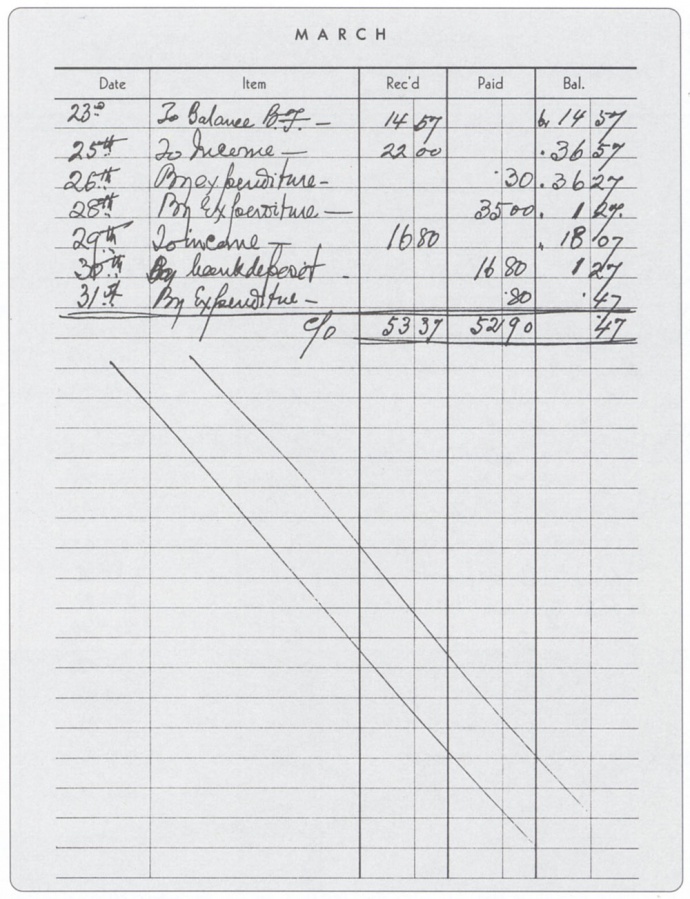 MARCH
Date Item Rec'd Paid Bal.
23rd To Balance B.F. — 14 57 14 57
25th To Income — 22 00 . 36 57
26th By expenditure - . 30 . 36 27
28th By Expenditure — 35 00 . 1 27.
29th To income — 16 80 . 18 07
30th By bank deposit - 16 80 1 27
31st By Expenditure - . 80 . 47
c/o 53 37 52 90 . 47